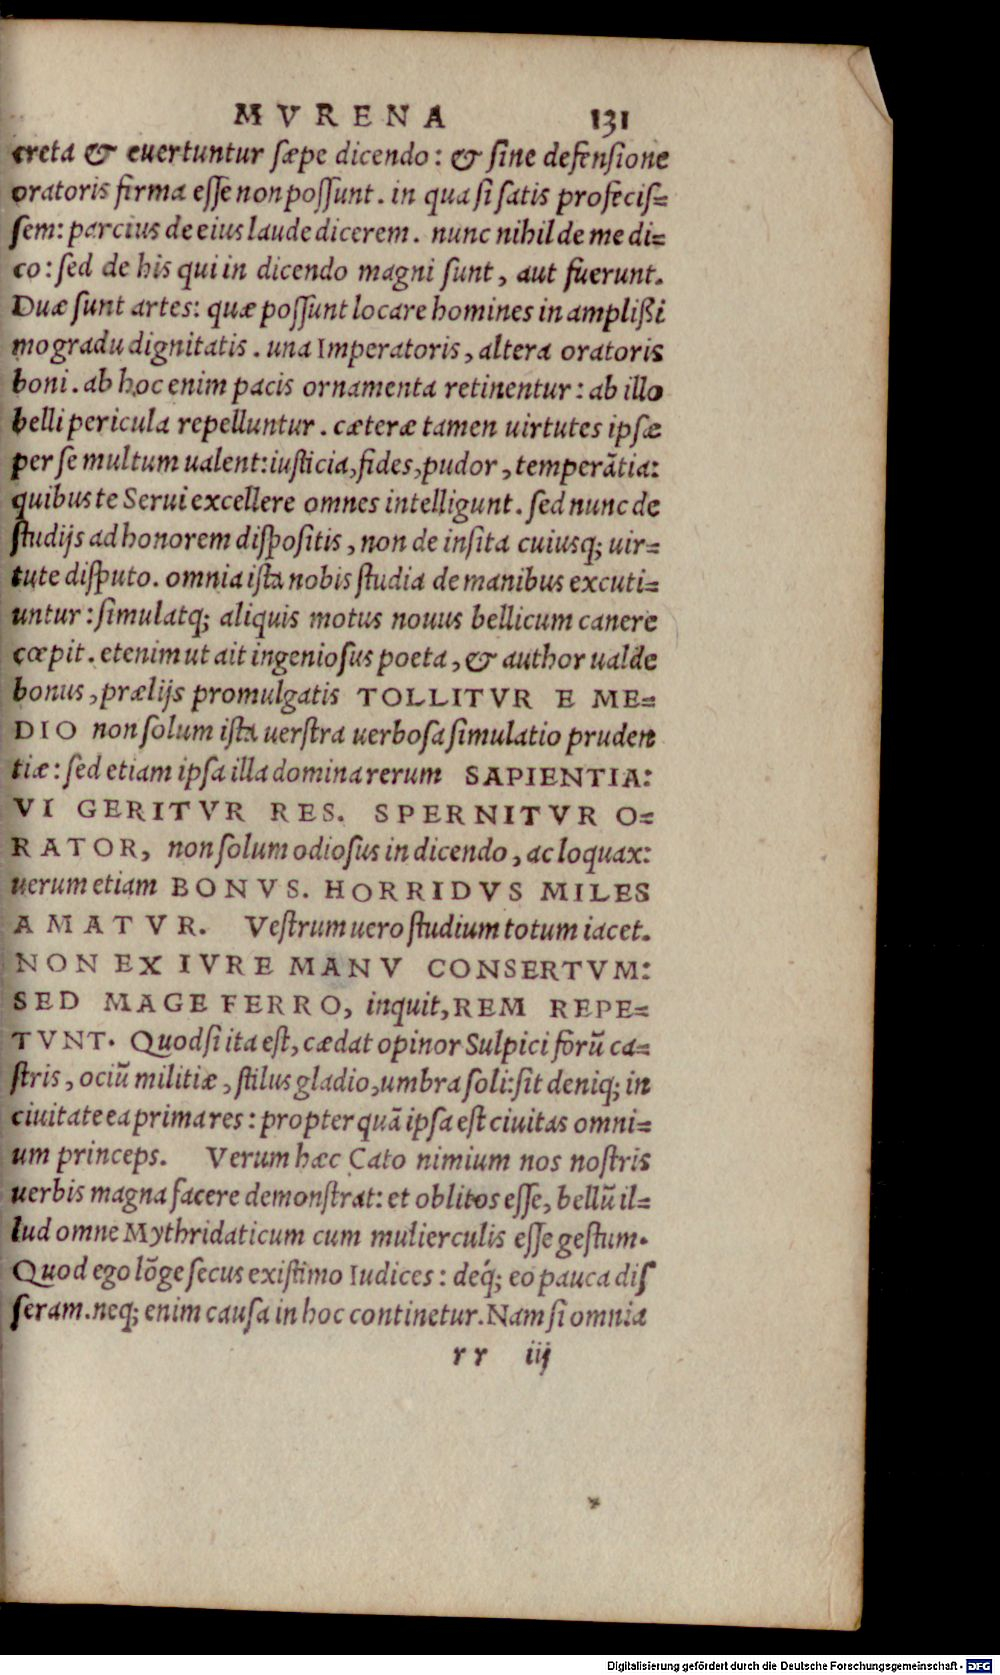 MVRENA 131
creta & euertuntur sæpe dicendo: & sine defensione
oratoris firma esse non possunt. in qua si satis profecis=
sem: parcius de eius laude dicerem. nunc nihil de me di=
co: sed de his qui in dicendo magni sunt, aut fuerunt.
Duæ sunt artes: quæ possunt locare homines in amplißi
mo gradu dignitatis. una Imperatoris, altera oratoris
boni. ab hoc enim pacis ornamenta retinentur: ab illo
belli pericula repelluntur. cæteræ tamen uirtutes ipsæ
per se multum ualent: iusticia, fides, pudor, temperãtia:
quibus te Serui excellere omnes intelligunt. sed nunc de
studijs ad honorem dispositis, non de insita cuiusq; uir=
tute disputo. omnia ista nobis studia de manibus excuti=
untur: simulatq; aliquis motus nouus bellicum canere
cœpit. etenim ut ait ingeniosus poeta, & author ualde
bonus, prælijs promulgatis TOLLITVR E ME=
DIO non solum ista uerstra uerbosa simulatio pruden
tiæ: sed etiam ipsa illa domina rerum SAPIENTIA:
VI GERITVR RES. SPERNITVR O=
RATOR, non solum odiosus in dicendo, ac loquax:
uerum etiam BONVS. HORRIDVS MILES
AMATVR. Vestrum uero studium totum iacet.
NON EX IVRE MANV CONSERTVM:
SED MAGE FERRO, inquit, REM REPE=
TVNT. Quod si ita est, cædat opinor Sulpici forũ ca=
stris, ociũ militiæ, stilus gladio, umbra soli: sit deniq; in
ciuitate ea prima res: propter quã ipsa est ciuitas omni=
um princeps. Verum hæc Cato nimium nos nostris
uerbis magna facere demonstrat: et oblitos esse, bellũ il=
lud omne Mythridaticum cum mulierculis esse gestum.
Quod ego lõge secus existimo Iudices: deq́; eo pauca dis
seram. neq; enim causa in hoc continetur. Nam si omnia
rr iij
Digitalisierung gefördert durch die Deutsche Forschungsgemeinschaft - DFG